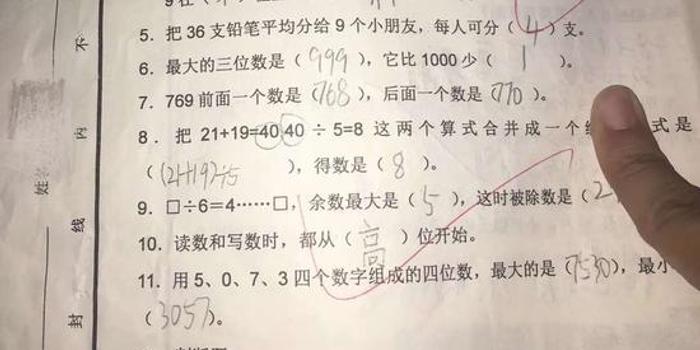 5. 把 36 支铅笔平均分给 9 个小朋友，每人可分（ 4 ）支。
6. 最大的三位数是（ 999 ），它比 1000 少（ 1 ）。
7. 769 前面一个数是（768），后面一个数是（770）。
8. 把 21+19=40 40 ÷ 5=8 这两个算式合并成一个 式是
（(21+19)÷5 ），得数是（ 8 ）。
9. □÷6=4……□，余数最大是（ 5 ），这时被除数是（2
10. 读数和写数时，都从（ 高 ）位开始。
11. 用 5、0、7、3 四个数字组成的四位数，最大的是（7530），最小
（3057）。
姓名
不
内
线
封